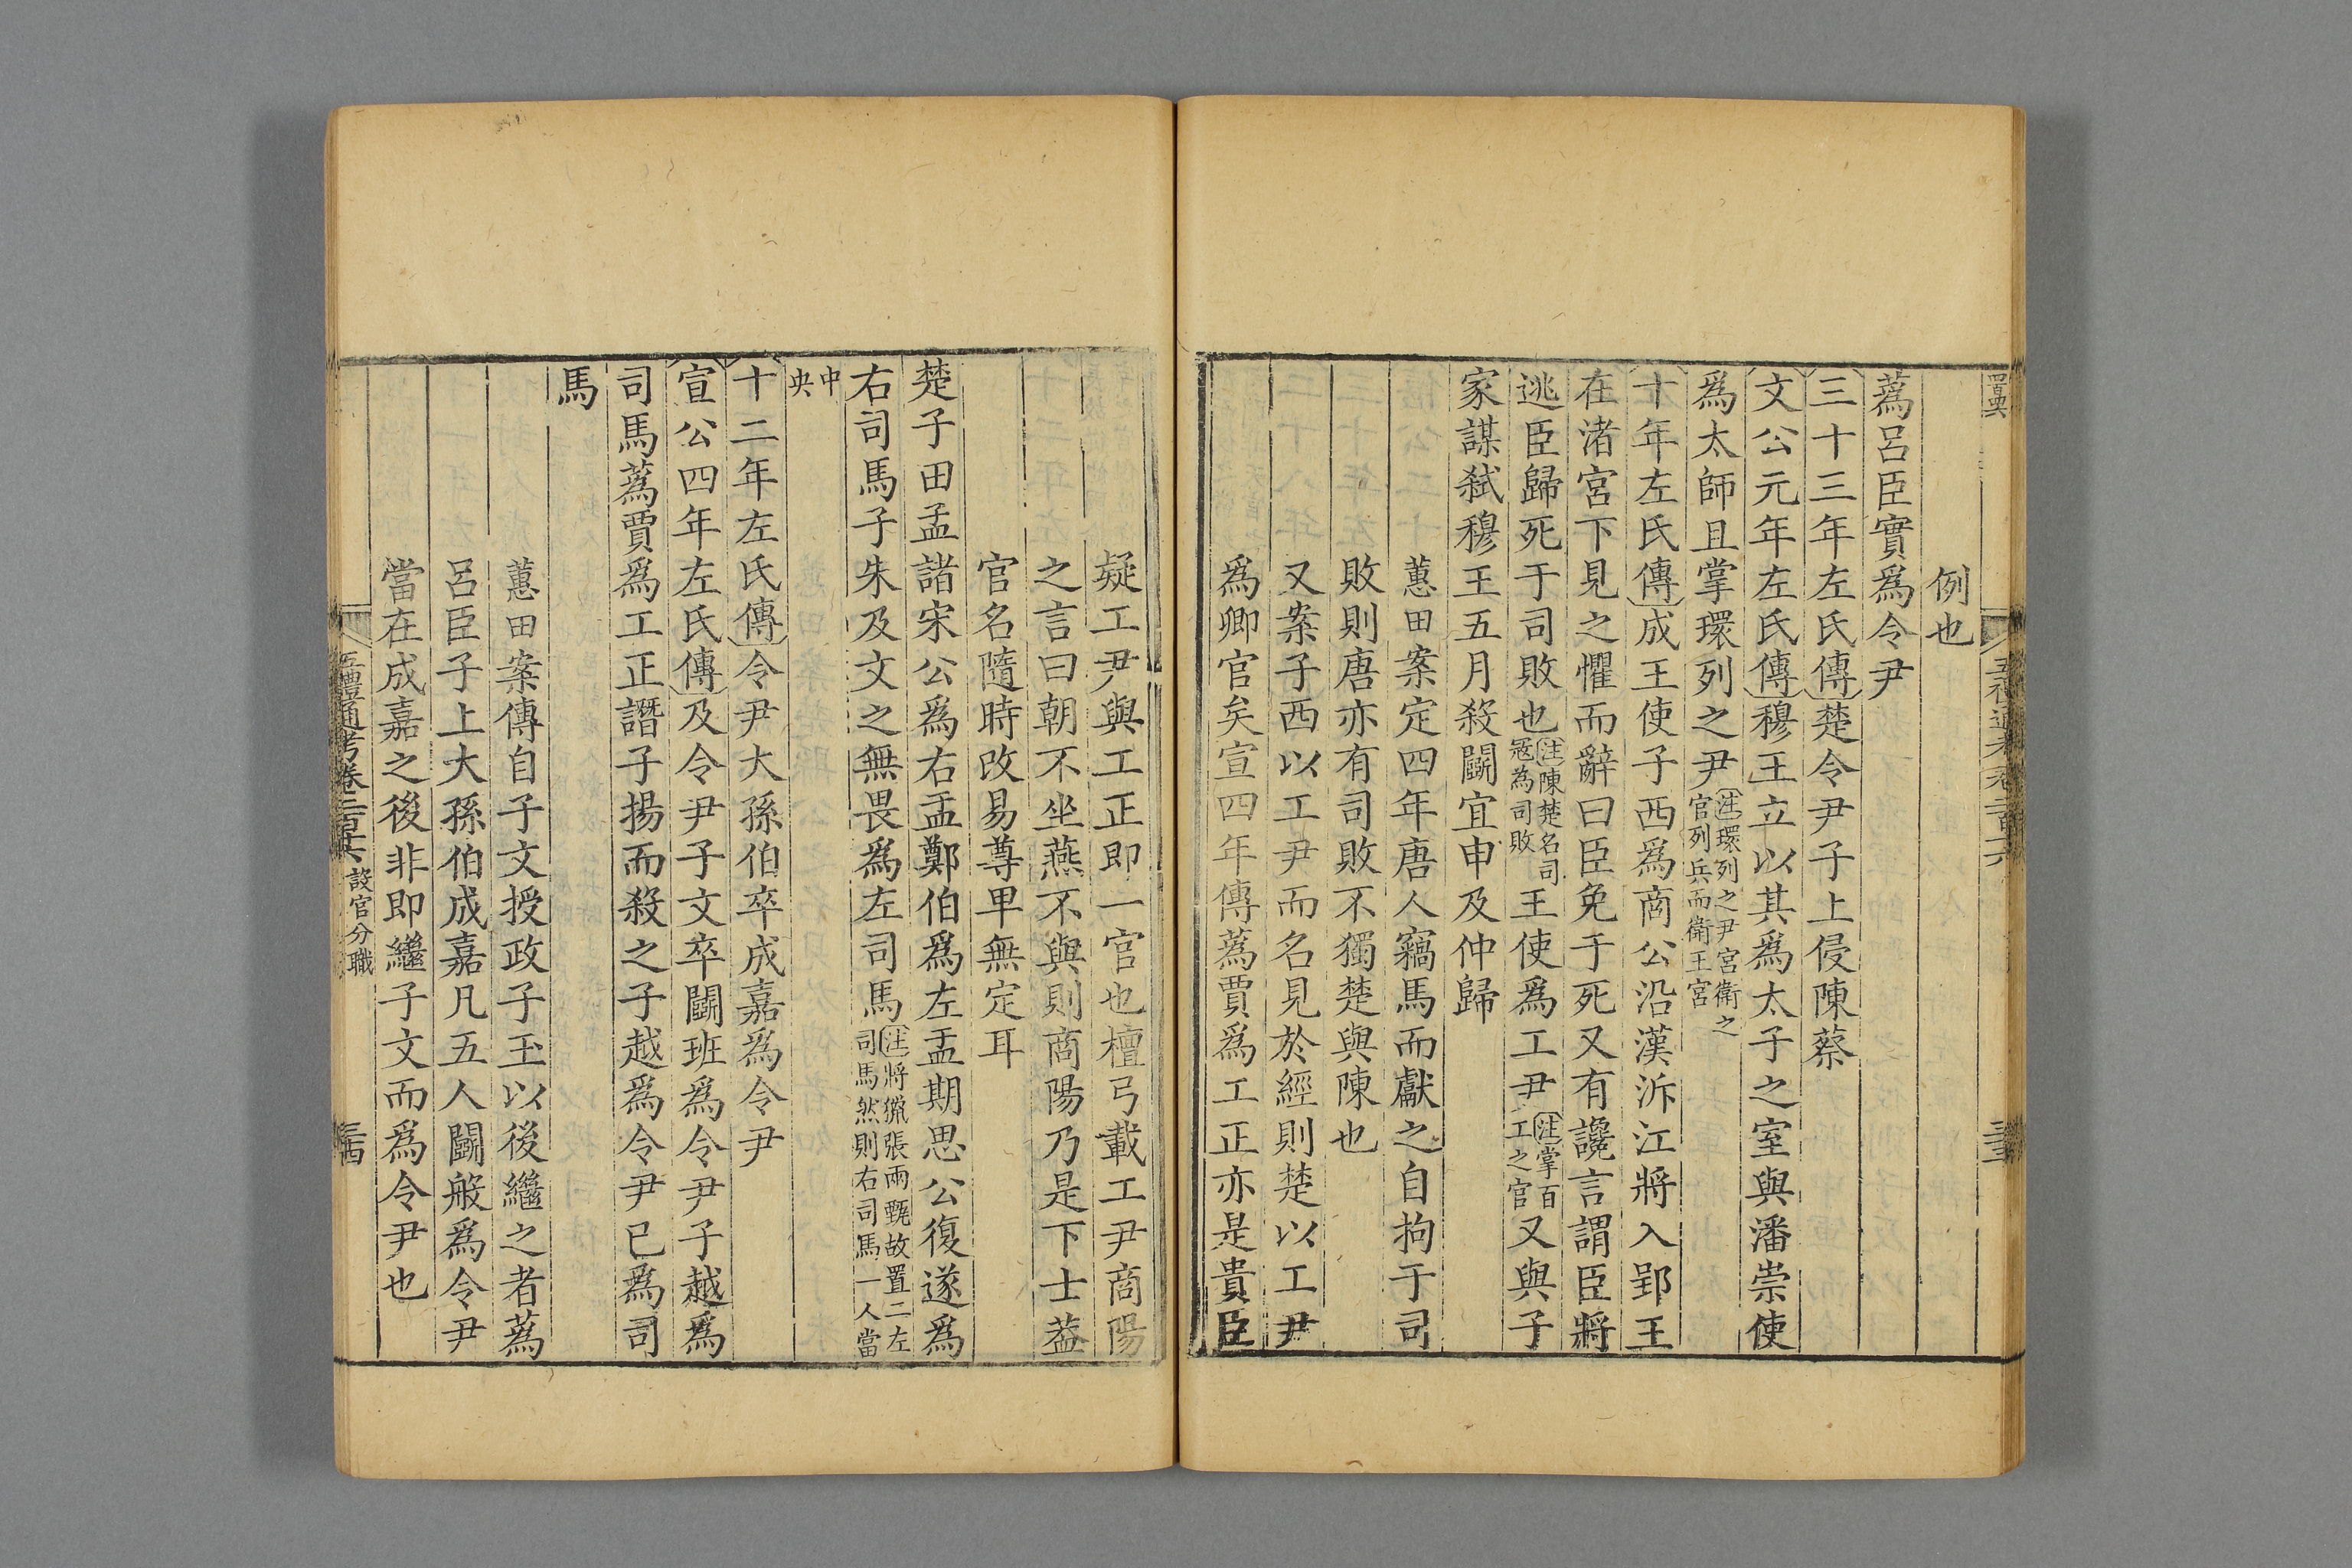 例也
蔿呂臣實爲令尹
三十三年左氏傳楚令尹子上侵陳蔡
文公元年左氏傳穆王立以其爲太子之室與潘崇使
爲太師且掌環列之尹注環列之尹宮衛之官列兵而衛王宮
十年左氏傳成王使子西爲商公沿漢泝江將入郢王
在渚宮下見之懼而辭曰臣免于死又有讒言謂臣將
逃臣歸死于司敗也注陳楚名司冦為司敗王使爲工尹注掌百工之官又與子
家謀弑穆王五月殺鬭宜申及仲歸
蕙田案定四年唐人竊馬而獻之自拘于司
敗則唐亦有司敗不獨楚與陳也
又案子西以工尹而名見於經則楚以工尹
爲卿官矣宣四年傳蔿賈爲工正亦是貴臣
疑工尹與工正即一官也檀弓載工尹商陽
之言曰朝不坐燕不與則商陽乃是下士葢
官名隨時改易尊卑無定耳
楚子田孟諸宋公爲右盂鄭伯爲左盂期思公復遂爲
右司馬子朱及文之無畏爲左司馬注將獵張兩甄故置二左司馬然則右司馬一人當
中央
十二年左氏傳令尹大孫伯卒成嘉爲令尹
宣公四年左氏傳及令尹子文卒鬭班爲令尹子越爲
司馬蔿賈爲工正譖子揚而殺之子越爲令尹已爲司
馬
蕙田案傳自子文授政子玉以後繼之者蔿
呂臣子上大孫伯成嘉凡五人鬭般爲令尹
當在成嘉之後非即繼子文而爲令尹也
五禮通考卷二百十六 設官分職 三四